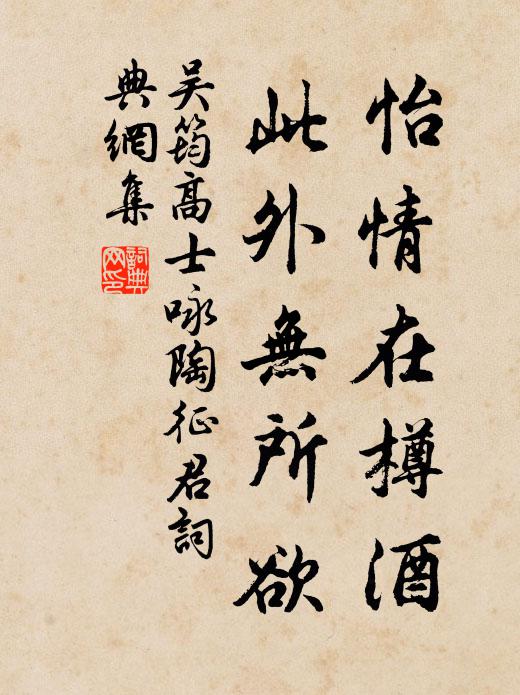 怡情在樽酒
此外無所欲
吴筠高士咏陶征君詞
典網集
詞典
网印